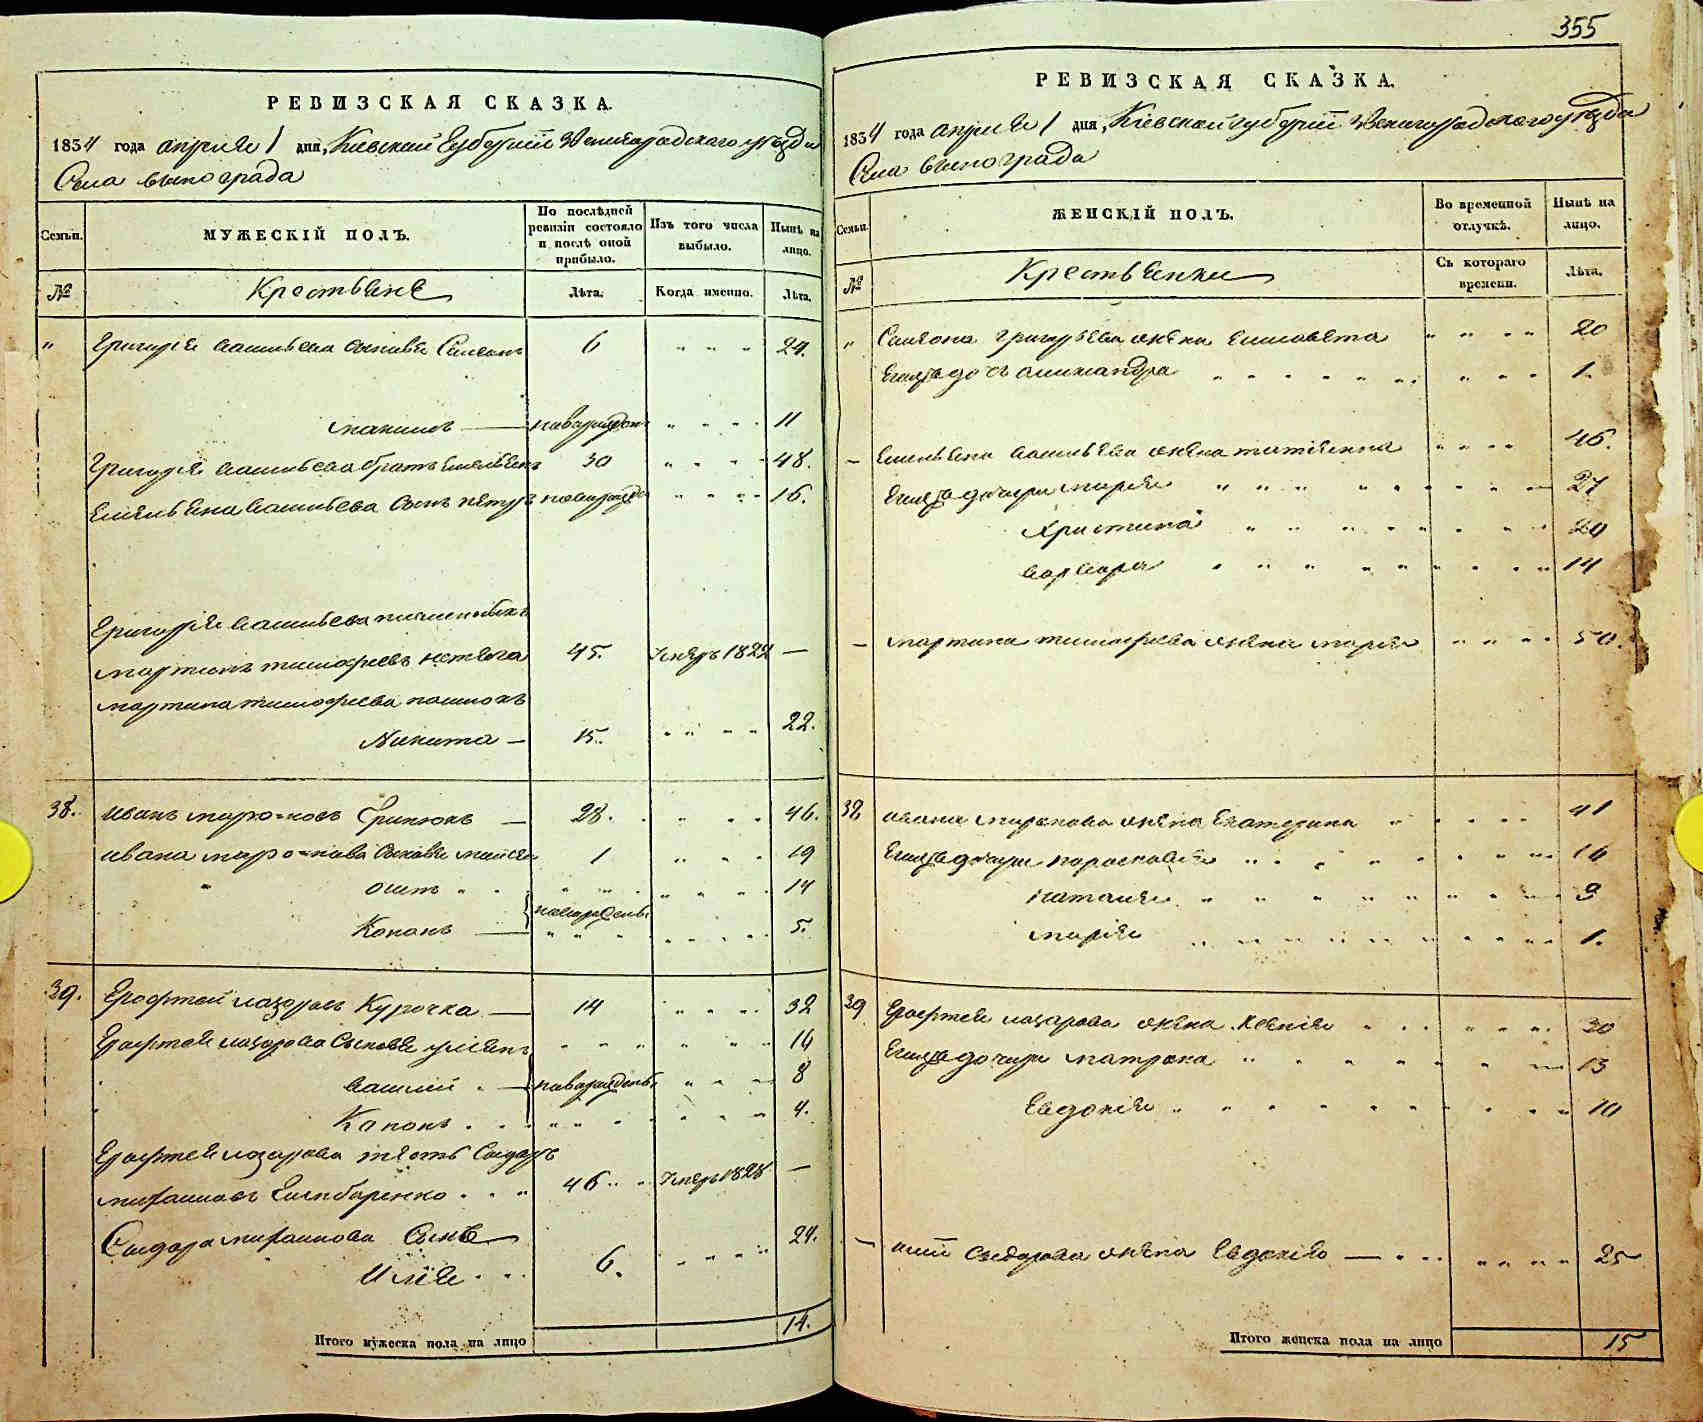 355
РЕВИЗСКАЯ СКАЗКА.
1834 года апреля 1 дня, Киевской Губернии Звенигородского уезда
Села винограда
Семьи. МУЖЕСКІЙ ПОЛЪ. По послѣдней ревизіи состояло и послѣ оной прибыло. Изъ того числа выбыло. Нынѣ на лицо.
№ Крестьяне Лѣта. Когда именно. Лѣта.
" Григорія васильева сыновья Симеонъ 6 " " " 24.
максимъ — новорожден " " " " 11
Григорія васильева братъ Емельянъ 30 " " " " 48.
Емельяна васильева сынъ петръ новорожде " " " " 16.
Григорія васильева племенникъ
мартинъ тимофеевъ 45. умеръ 1822 —
мартина тимофеева
Никита — 15. " " " " 22.
38. иванъ миро=новъ Гринюкъ — 28. " " " 46.
ивана миро=нова сыновья моисей 1 " " " 19
" осипъ " " " " " " " 14
новорожденъ
Кононъ — " " " " " " " 5.
39. Ерофтей лазоревъ Курочка — 14 " " " " 32
Ерофтея лазорева сыновья " " " " " " " 16
василій — новорожденъ " " " 8
Кононъ " " " " " " " 4.
Ерофтея лазорева тесть Сидоръ
46 " " умеръ 1828 —
Сидора сынъ 24.
Илія " " 6. " " " "
Итого мужеска пола на лицо 14.
РЕВИЗСКАЯ СКАЗКА.
1834 года апреля 1 дня, Киевской губерніи Звенигородского уезда
Села винограда
Семьи. ЖЕНСКІЙ ПОЛЪ. Во временной отлучкѣ. Нынѣ на лицо.
№ Крестьянки Съ котораго времени. Лѣта.
" Симеона григорьева жена елисавета " " " " 20
Егожъ дочь александра " " " " " " " " " " 1.
— емельяна васильева жена татіянна " " " " 46.
Егожъ дочери марія " " " " " " " " " 27
Христина " " " " " " " " 20
варвара " " " " " " " " " 14
— мартина тимофеева жена марія " " " " 50.
38 ивана миронова жена Екатерина " " " " " 41
Егожъ дочери параскавія " " " " " " " " 16
наталія " " " " " " " " " " 9
марія " " " " " " " " " " 1.
39 Ерофтея лазарева жена Ксенія " " " " " " 30
Егожъ дочери матрона " " " " " " " 13
Евдокія " " " " " " " " " " 10
— иліи сидорова жена Евдокія — " " " " " " 25
Итого женска пола на лицо 15